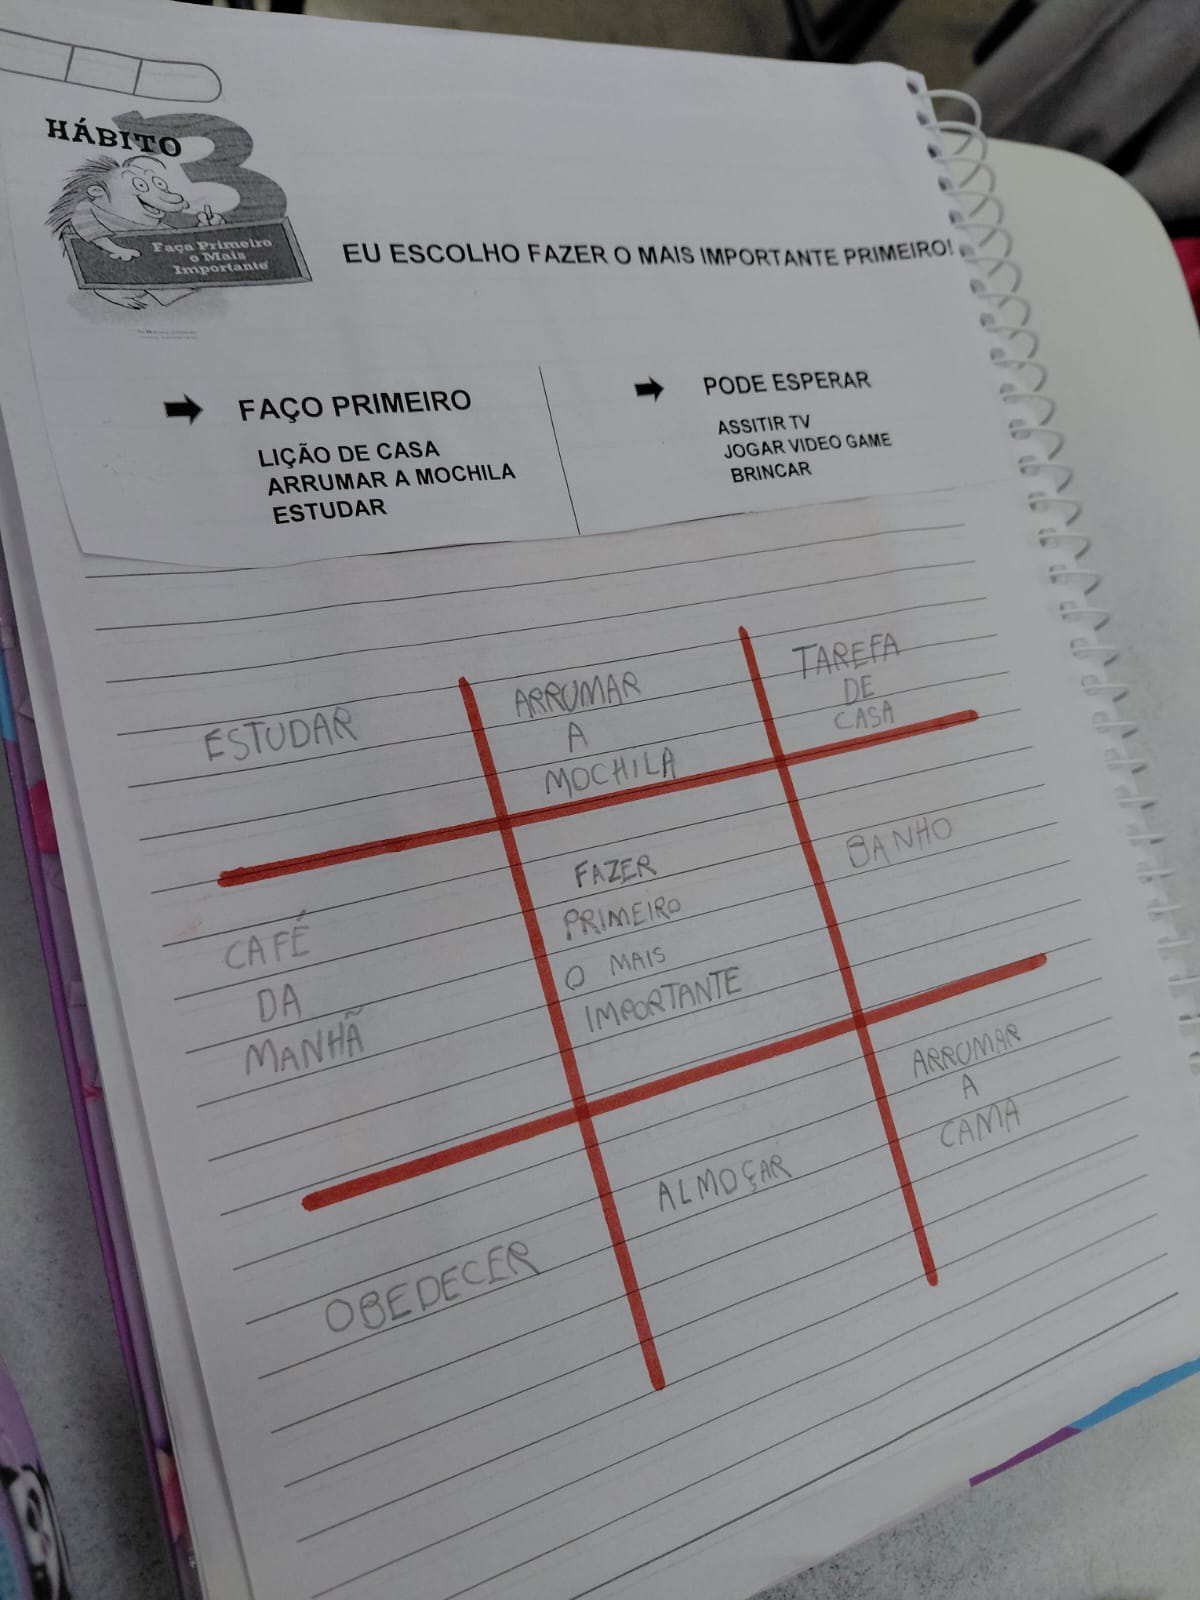 HÁBITO 3
Faça Primeiro
o Mais
Importante
EU ESCOLHO FAZER O MAIS IMPORTANTE PRIMEIRO!
FAÇO PRIMEIRO
LIÇÃO DE CASA
ARRUMAR A MOCHILA
ESTUDAR
PODE ESPERAR
ASSITIR TV
JOGAR VIDEO GAME
BRINCAR
ESTUDAR
ARRUMAR
A
MOCHILA
TAREFA
DE
CASA
CAFÉ
DA
MANHÃ
FAZER
PRIMEIRO
O MAIS
IMPORTANTE
BANHO
OBEDECER
ALMOÇAR
ARRUMAR
A
CAMA